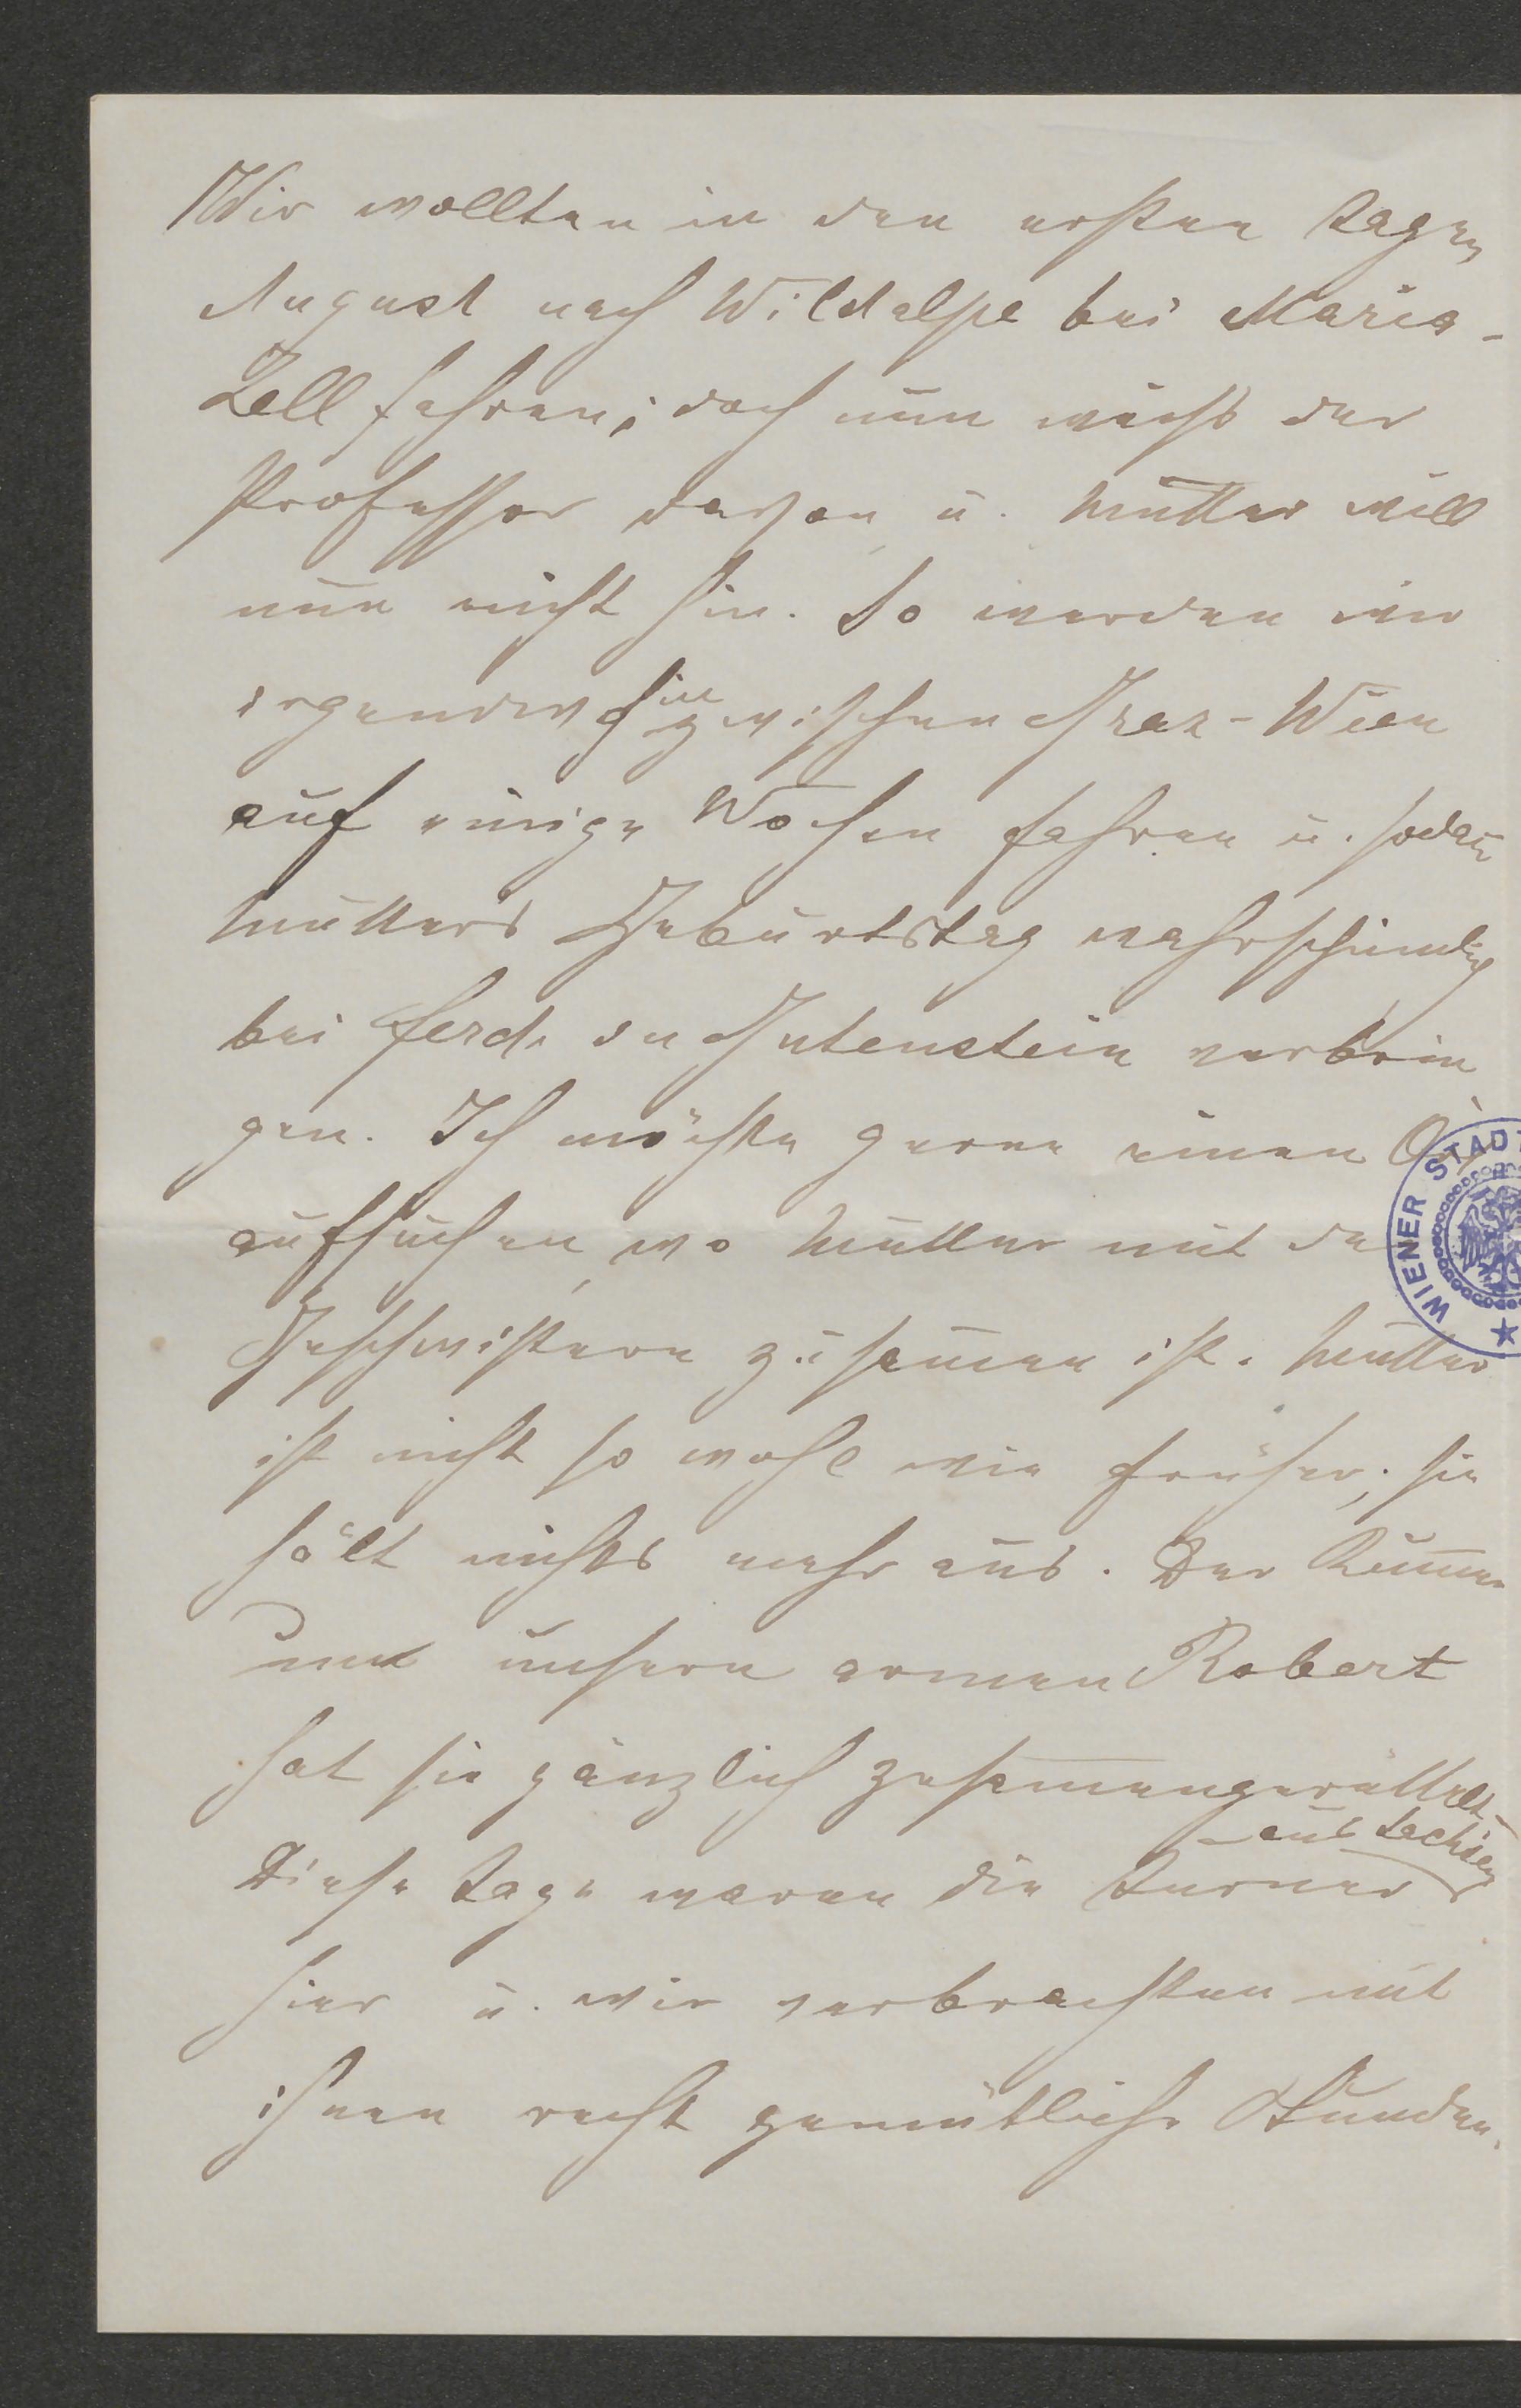 Wir wollten in den ersten Tagen
August nach Wildalpe bei Maria-
Zell fahren; doch nun weicht der
Professor davon u. Mutter will
nun nicht hin. So werden wir
irgendwohin zwischen Graz-Wien
auf einige Wochen fahren u. sodañ
Mutters Geburtstag wahrscheinlich
bei Ferd. in Gutenstein verbrin
gen. Ich möchte gerne einen Ort
aufsuchen, wo Mutter mit den
Geschwistern zusam̄en ist. Mutter
ist nicht so wohl wie früher; sie
hält nichts mehr aus. Der Kum̄er
um unsern armen Robert
hat sie gänzlich zusam̄engerüttelt.
aus Sachsen
Diese Tage waren die Turner
hier u. wir verbrachten mit
ihnen recht gemütliche Stunden.
WIENER STADT